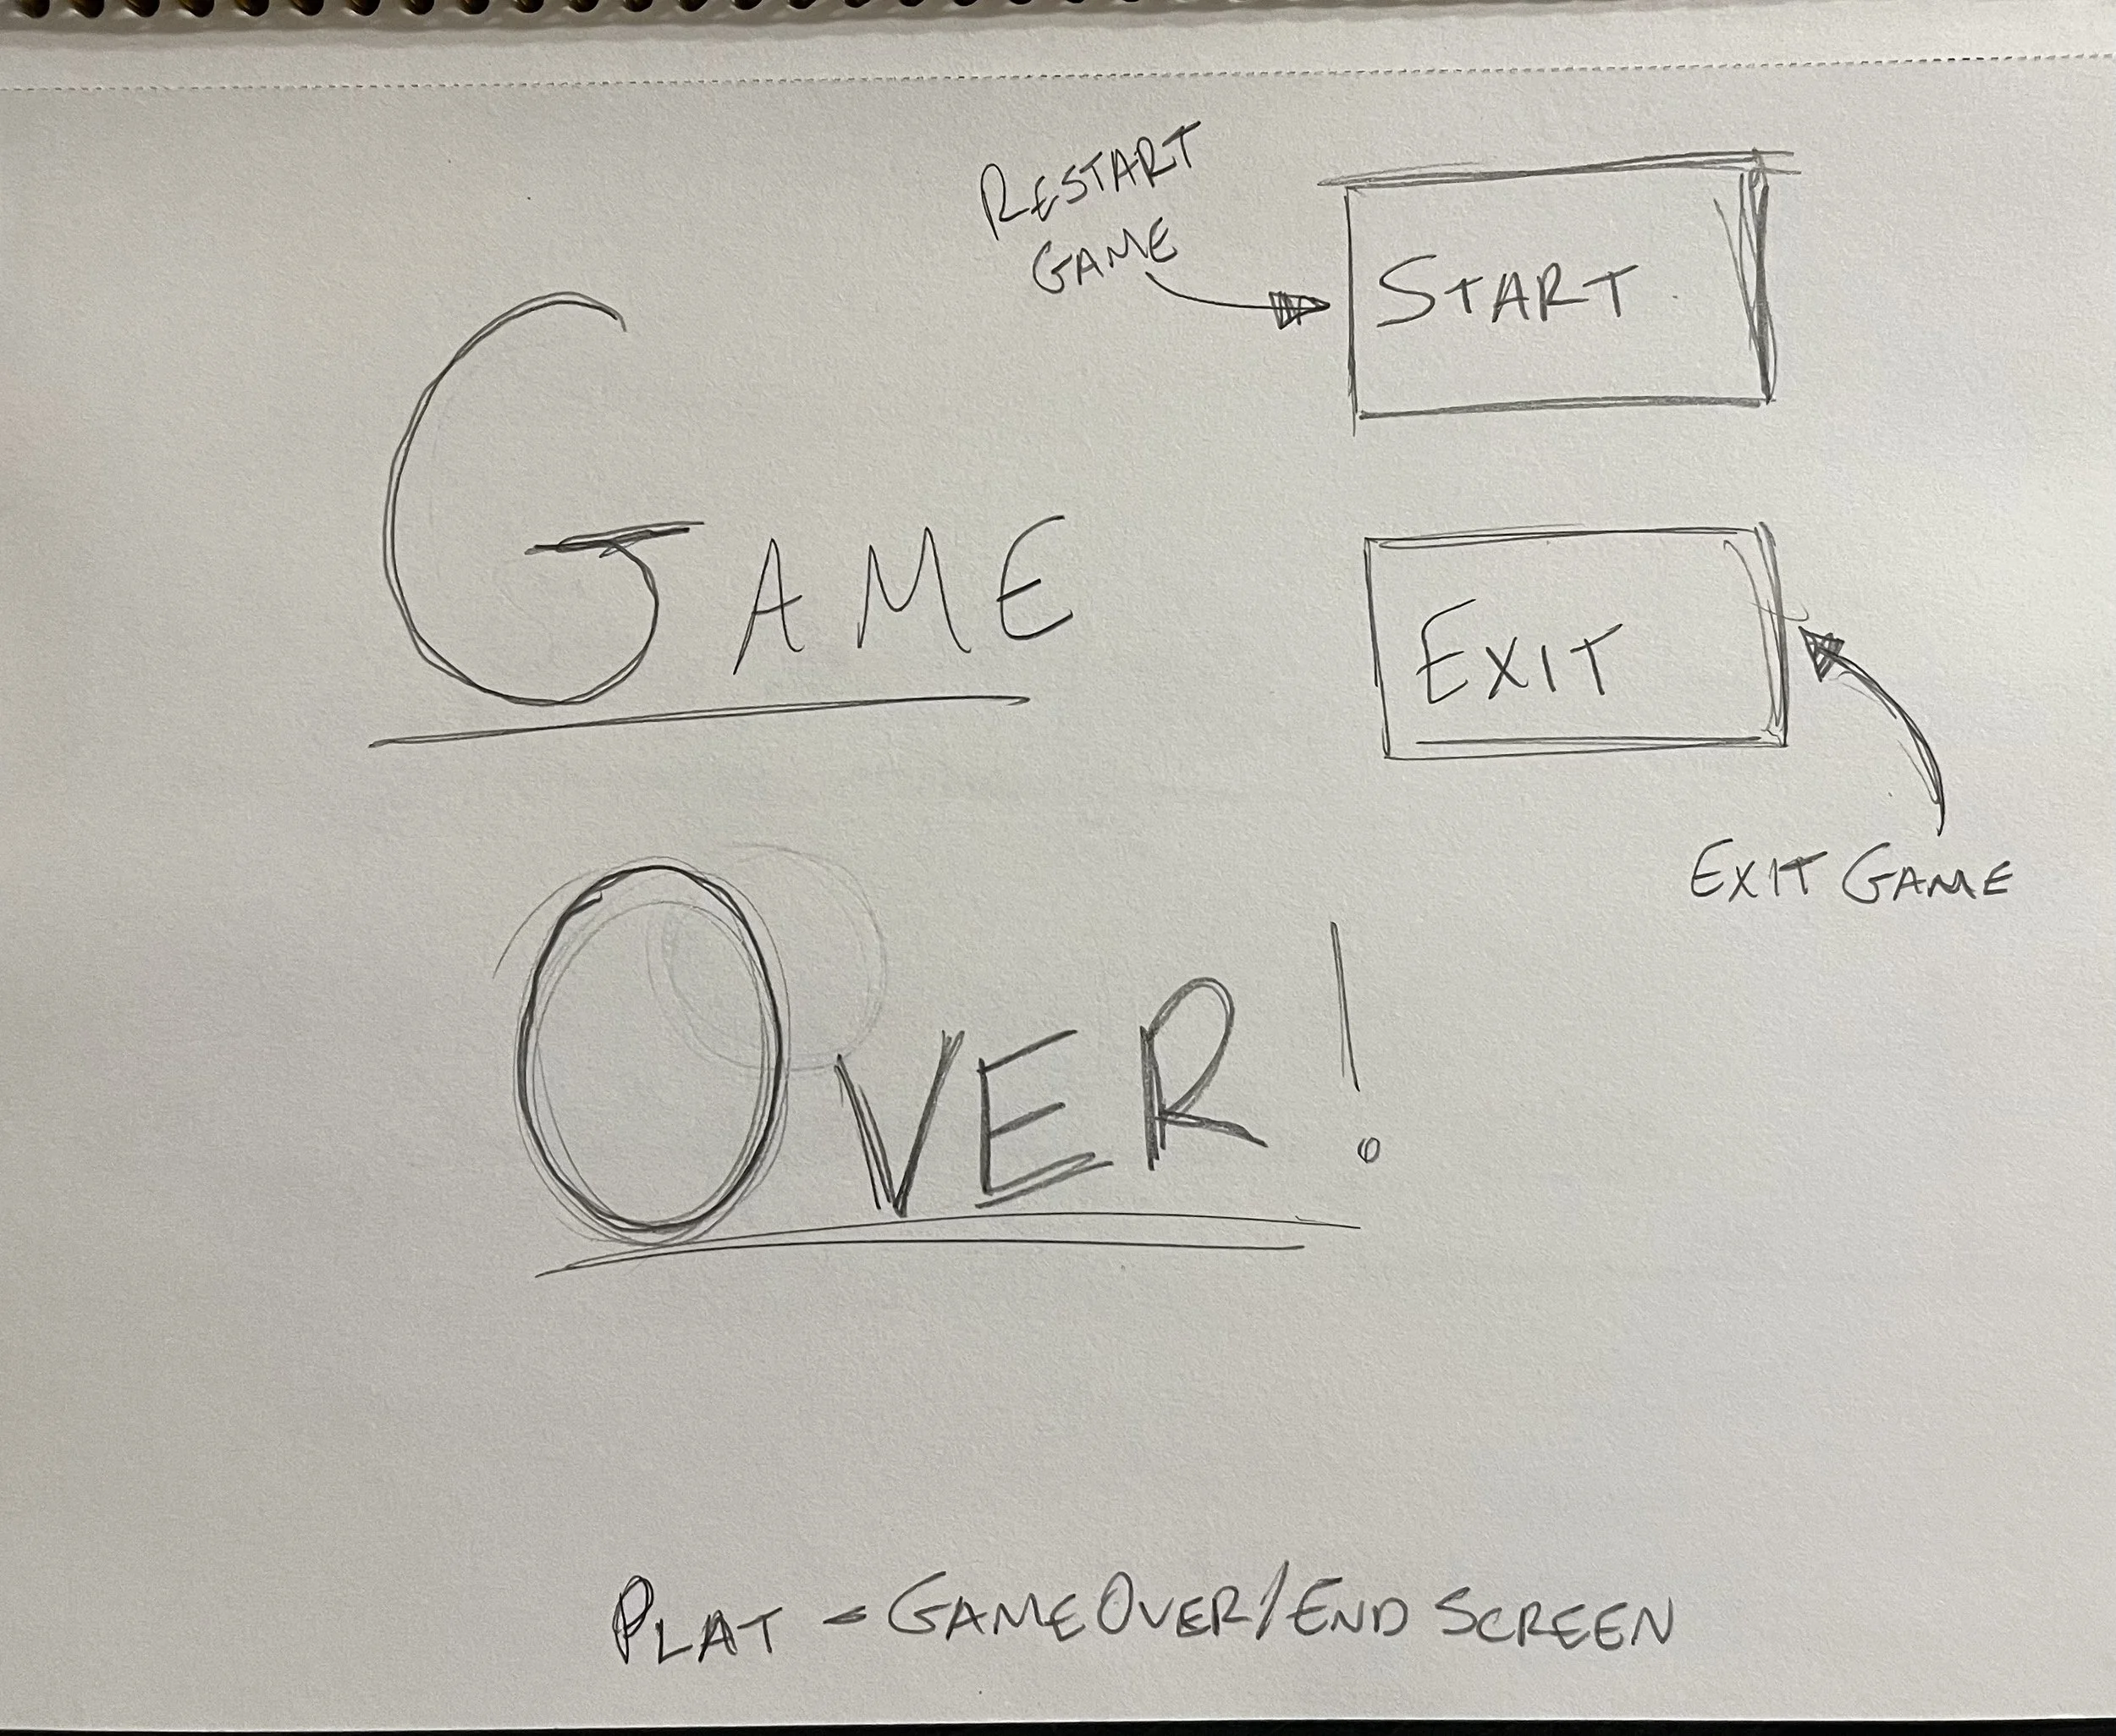 RESTART
GAME
START
GAME
EXIT
EXIT GAME
OVER!
PLAT - GAMEOVER/END SCREEN